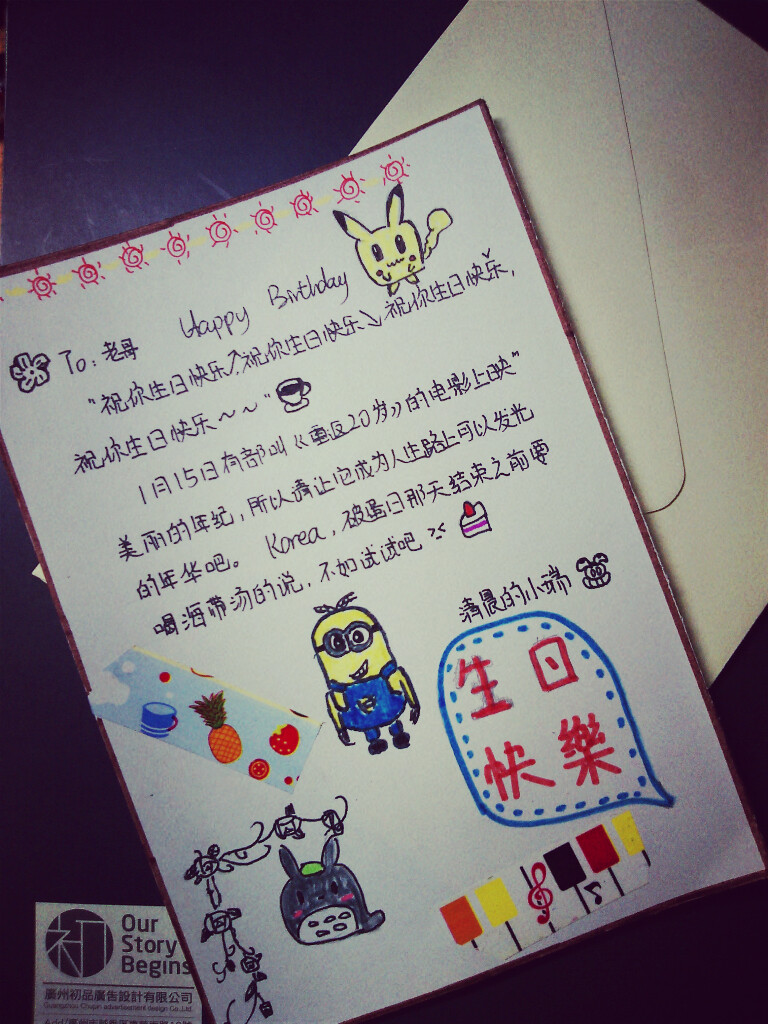 Happy Birthday
To: 老哥
“祝你生日快乐↗祝你生日快乐↘祝你生日快乐,
祝你生日快乐～～”
1月15日有部叫《重返20岁》的电影上映”
美丽的年纪,所以请让它成为人生路上可以发光
的年华吧。 Korea, 破蛋日那天结束之前要
喝海带汤的说, 不如试试吧
清晨的小瑞
生日
快樂
Our
Story
Begins
廣州初品廣告設計有限公司
Guangzhou Chupin advertisement design Co.,Ltd.